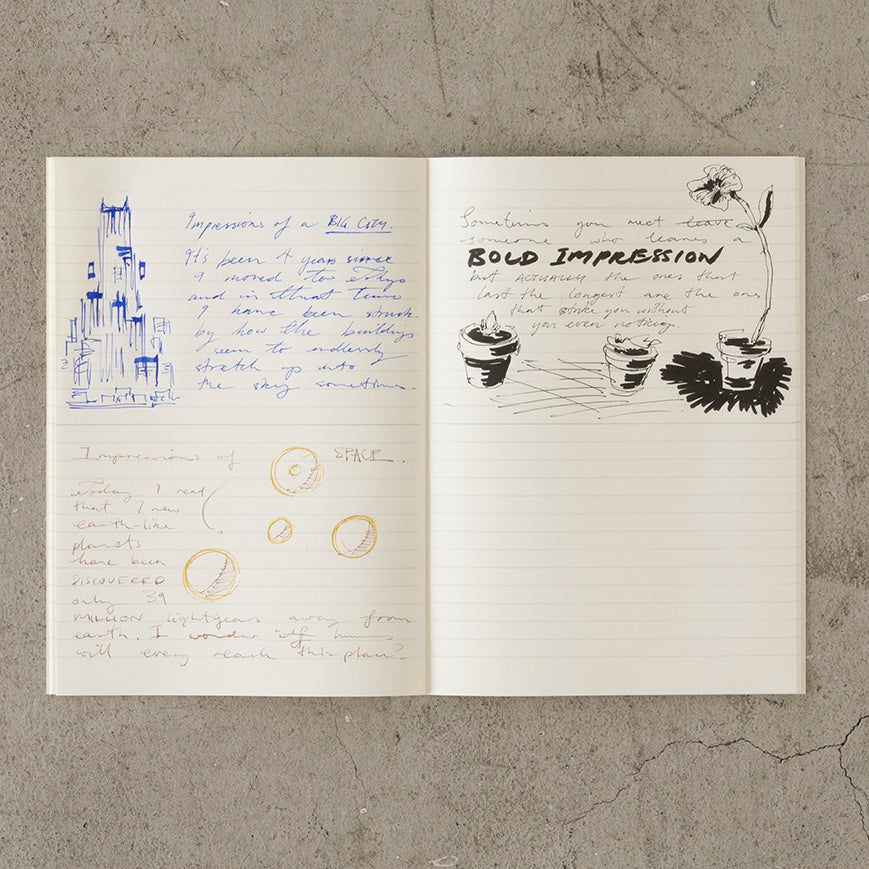 Impressions of a BIG CITY.
It's been 4 years since
I moved to Tokyo
and in that time
I have been struck
by how the buildings
seem to endlessly
stretch up into
the sky sometimes.
Impressions of SPACE.
Today I read
that 7 new
earth-like
planets
have been
DISCOVERED
only 39
MILLION lightyears away from
earth. I wonder if humans
will every reach this place?
Sometimes you meet leave
someone who leaves a
BOLD IMPRESSION
but ACTUALLY the ones that
last the longest are the ones
that strike you without
you even